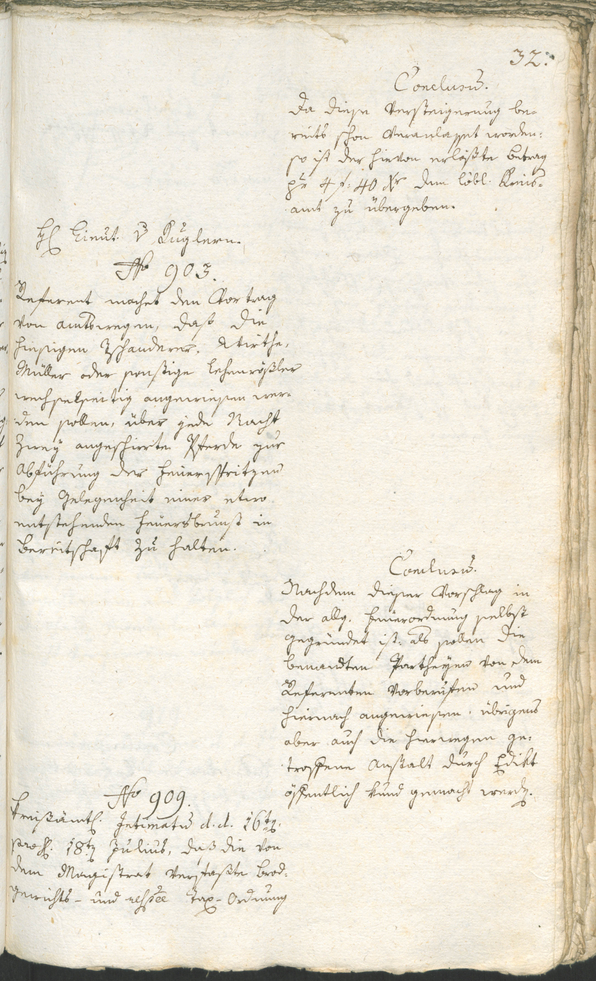 32.
Conclusum.
Da diese Versteigerung be-
reits schon veranlasset worden:
so ist der hievon erlößte Betrag
pr 4 f: 40 Xr dem löbl. Kreis-
amt zu übergeben.
H Lieut. v Kuglern.
No 903.
Referent machet den Vortrag
von amtswegen, daß die
hiesigen Wirthe,
Müller oder sonstige Lehenrößler
wechselseitig angewiesen wer-
den sollen, über jede Nacht
zwey angeschirrte Pferde zur
Abführung der Feuerspritzen
bey Gelegenheit einer etwo
entstehenden Feuersbrunst in
Bereitschaft zu halten.
Conclusum.
Nachdem dieser Vorschlag in
der allg. Feuerordnung selbst
gegründet ist, als sollen die
benandten Partheyen von dem
Referenten vorberufen und
hiernach angewiesen, übrigens
aber auch die hierwegen ge-
troffene Anstalt durch Edikt
öffentlich kund gemacht werdn.
No 909.
Kreisämtl. Intimatum d.d. 16tn
praes: 18tn Julius, daß die von
dem Magistrat verfaßte Brod-
Gewichts- und Tax-Ordnung